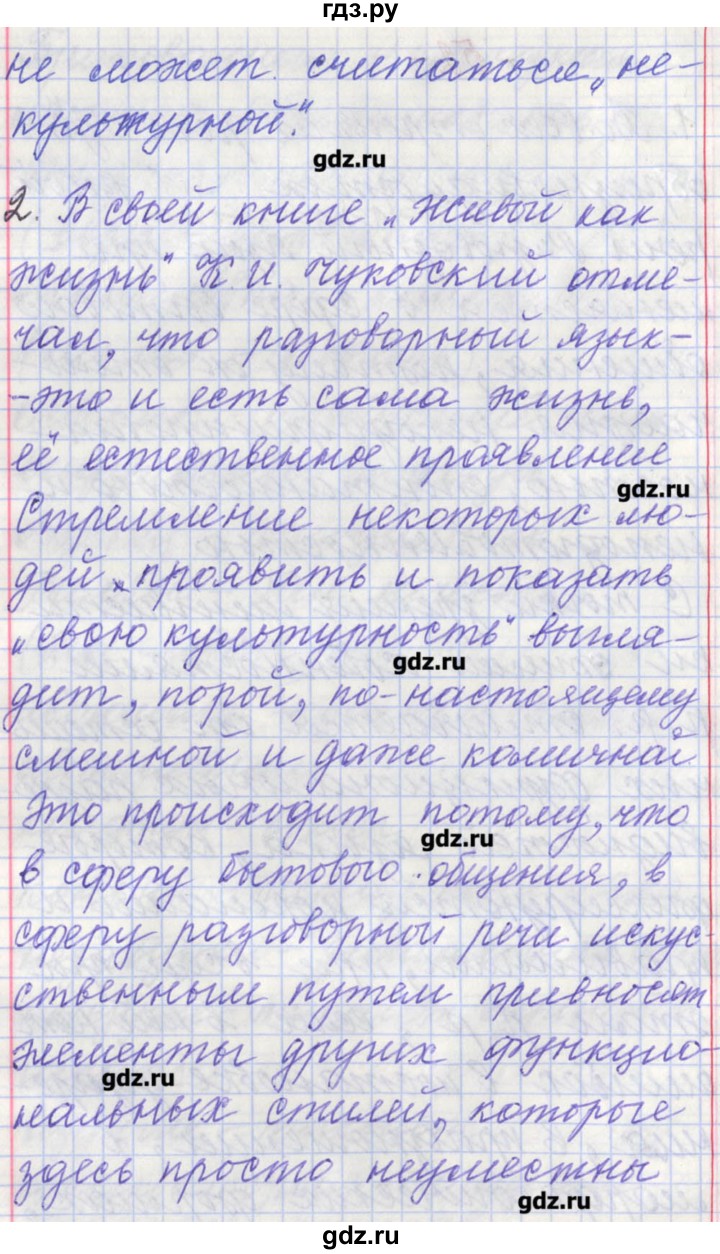 гдз.ру
не может считаться „не-
культурной".
gdz.ru
2. В своей книге „Живой как
жизнь" К. И. Чуковский отме-
чал, что разговорный язык-
-это и есть сама жизнь,
её естественное проявление
gdz.ru
Стремление некоторых лю-
дей проявить и показать
„свою культурность" выгля-
gdz.ru
дит, порой, по-настоящему
смешной и даже комичной
Это происходит потому, что
gdz.ru
в сферу бытового общения, в
сферу разговорной речи искус-
ственным путем привносят
элементы других функцио-
gdz.ru
нальных стилей, которые
здесь просто неуместны
gdz.ru
gdz.ru